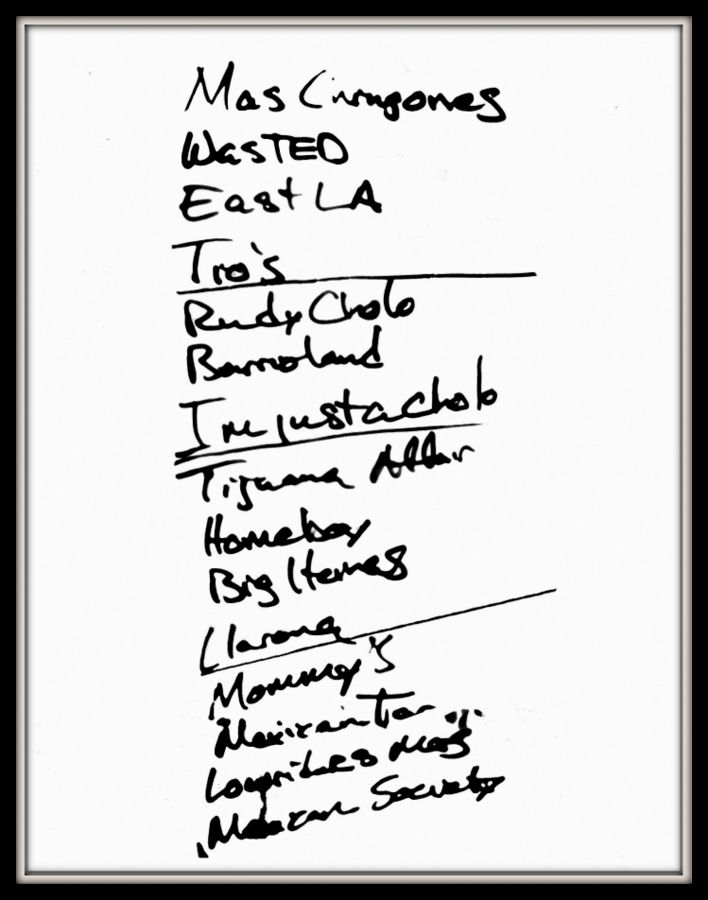 Mas Chingones
WasTED
East LA
Tro's
Rudy Cholo
Barrioland
Im just a cholo
Tijuana Affair
Homeboy
Big Hernas
Llarona
Mommy's
Mexican
Lowriders
Mexican Society